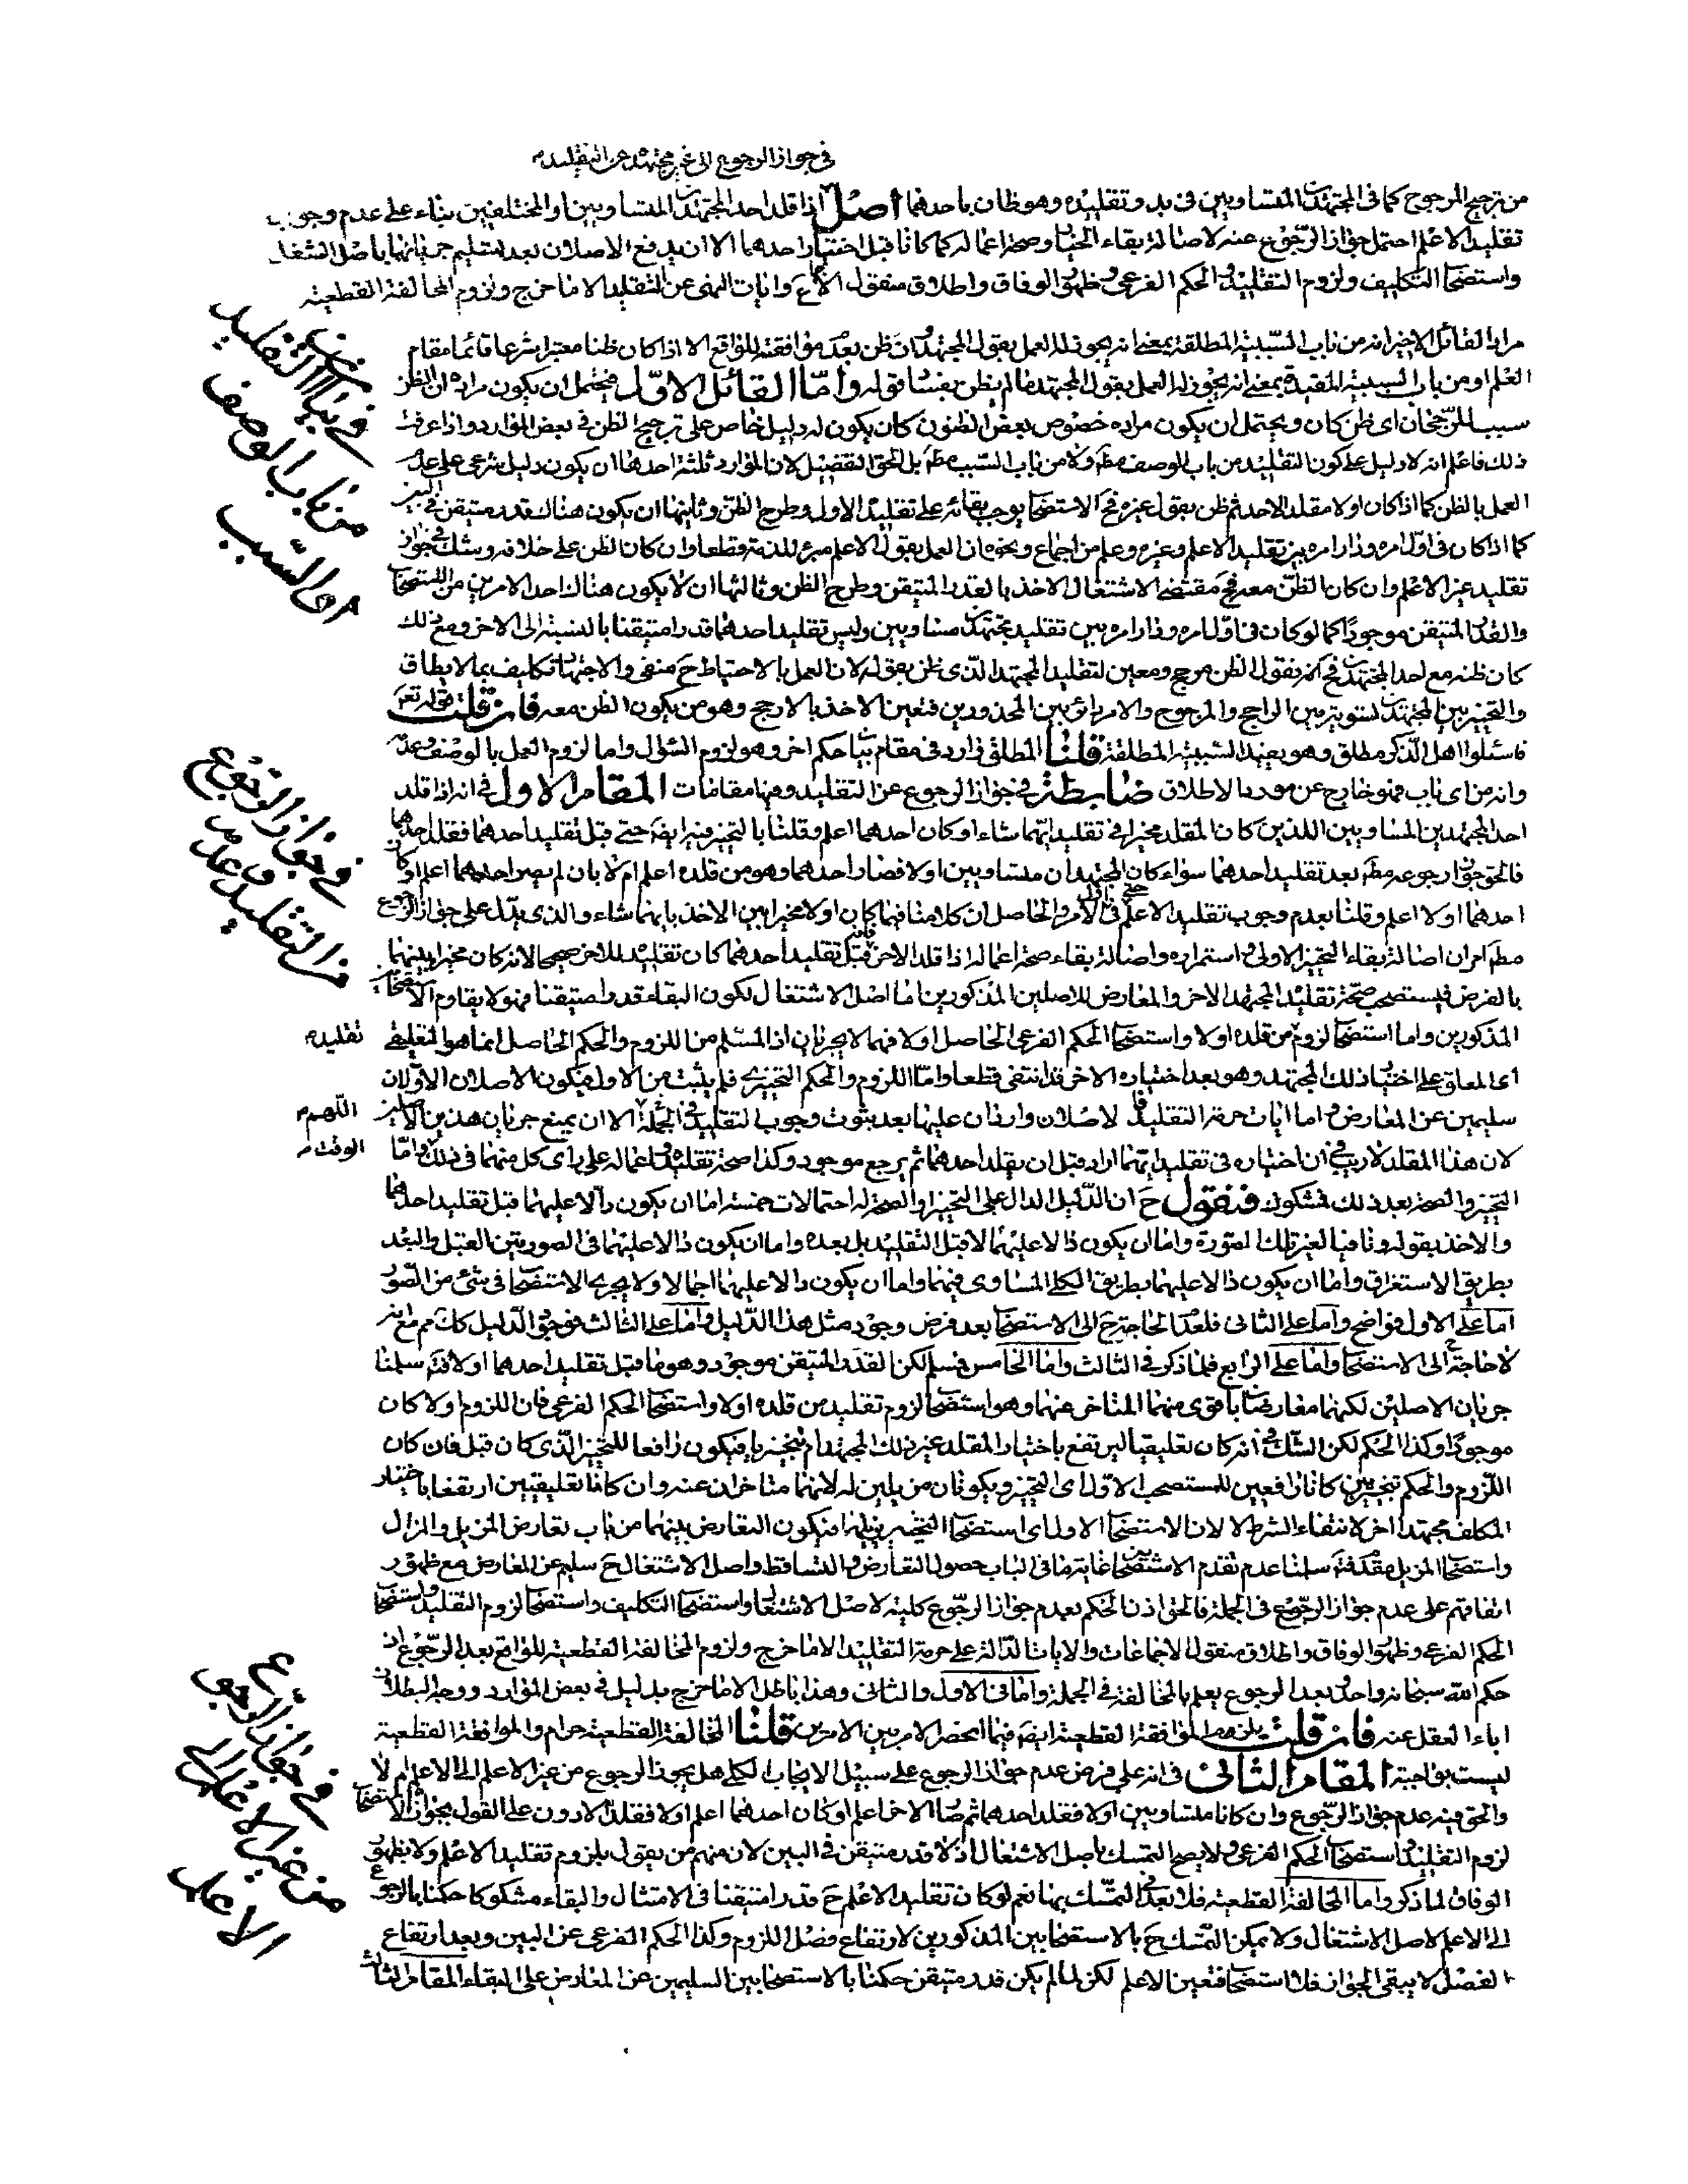 في جواز الرجوع الى غير مجتهده عن التقليد
من ترجيح المرجوح كما في المجتهدين المتساويين في بدو تقليده وهو ظان باحدهما اصل اذا قلد احد المجتهدين المتساويين او المختلفين بناء على عدم وجوب
تقليد الاعلم احتمل جواز الرجوع عنه لاصالة بقاء الخيار وصحة اعماله كما كانا قبل اختيار احدهما الا ان يدفع الاصلان بعد تسليم جريانهما باصل الشغل
واستصحاب التكليف ولزوم التقليد والحكم الفرعي وظهور الوفاق واطلاق منقول الاجماع وايات النهي عن التقليد الا ما خرج ولزوم المخالفة القطعية
مراد القائل الاخير انه من باب السببية المطلقة بمعنى انه يجوز له العمل بقول المجتهد وان ظن بعدم موافقته للواقع الا اذا كان ظنا معتبرا شرعا قائما مقام
العلم او من باب السببية المقيدة بمعنى انه يجوز له العمل بقول المجتهد ما لم يظن بفساد قوله واما القائل الاول فيحتمل ان يكون مراده ان الظن
سبب للرجحان اى ظن كان ويحتمل ان يكون مراده خصوص بعض الظنون كان يكون له دليل خاص على ترجيح الظن في بعض الموارد واذا عرفت
ذلك فاعلم انه لا دليل على كون التقليد من باب الوصف مطم ولا من باب السبب مطم بل الحق التفصيل لان الموارد ثلثة احدها ان يكون دليل شرعي على عدم
العمل بالظن كما اذا كان اولا مقلدا لاحد ثم ظن بقول غيره فح الاستصحاب يوجب بقائه على تقليد الاول وطرح الظن وثانيها ان يكون هناك قدر متيقن في البين
كما اذا كان في اول امره ودار امره بين تقليد الاعلم وغيره وعلم من اجماع ونحوه ان العمل بقول الاعلم مبرء للذمة قطعا وان كان الظن على خلافه ويشك في جواز
تقليد غير الاعلم وان كان الظن معه فح مقتضى الاشتغال الاخذ بالقدر المتيقن وطرح الظن وثالثها ان لا يكون هناك احد الامرين من الاستصحاب
والقدر المتيقن موجودا كما لو كان في اول امره ودار امره بين تقليد مجتهدين متساويين وليس تقليد احدهما قدرا متيقنا بالنسبة الى الاخر ومع ذلك
كان ظنه مع احد المجتهدين فح نقول الظن مرجح ومعين لتقليد المجتهد الذى ظن بقوله لان العمل بالاحتياط ح منفى والاجتهاد تكليف بما لا يطاق
والتخيير بين المجتهدين تسوية بين الراجح والمرجوح والامر دائر بين المحذورين فتعين الاخذ بالارجح وهو من يكون الظن معه فان قلت قوله تعم
فاسئلوا اهل الذكر مطلق وهو يفيد السببية المطلقة قلنا المطلق وارد في مقام بيان حكم اخر وهو لزوم السؤال واما لزوم العمل بالوصف وعدمه
وانه من اى باب فهو خارج عن مورد الاطلاق ضابطة في جواز الرجوع عن التقليد وفيها مقامات المقام الاول في انه اذا قلد
احد المجتهدين المتساويين اللذين كان المقلد مخيرا في تقليد ايهما شاء او كان احدهما اعلم وقلنا بالتخيير فيه ايضا حتى قبل تقليد احدهما فقلد احدهما
فالحق جواز رجوعه مطم بعد تقليد احدهما سواء كان المجتهدان متساويين اولا فصار احدهما وهو من قلده اعلم ام لا بان لم يصر احدهما اعلم او كان
احدهما اولا اعلم وقلنا بعدم وجوب تقليد الاعلم حتى في اول الامر والحاصل ان كلامنا فيما كان اولا مخيرا بين الاخذ بايهما شاء والذى يدل على جواز الرجوع
مطم امران اصالة بقاء التخيير الاولى واستمراره واصالة بقاء صحة اعماله اذا قلد الاخر فانه قبل تقليد احدهما كان تقليده للاخر صحيحا لانه كان مخيرا بينهما
بالفرض فيستصحب صحة تقليد المجتهد الاخر والمعارض للاصلين المذكورين اما اصل الاشتغال لكون البقاء قدرا متيقنا فهو لا يقاوم الاستصحابين
المذكورين واما استصحاب لزوم من قلده اولا واستصحاب الحكم الفرعي الحاصل اولا فهما لا يجريان اذ المسلم من اللزوم والحكم الحاصل انما هو التعليقي
تقليده
اى المعلق على اختيار ذلك المجتهد وهو بعد اختياره الاخر قد انتفى قطعا واما اللزوم والحكم التنجيزى فلم يثبت من الاول فيكون الاصلان الاولان
سليمين عن المعارض واما ايات حرمة التقليد فالاصلان واردان عليها بعد ثبوت وجوب التقليد في الجملة الا ان يمنع جريان هذين الاصلين
اللهم
لان هذا المقلد لا ريب في ان اختياره في تقليد ايهما اراد قبل ان يقلد احدهما ثم يرجع موجود وكذا صحة تقليده واعماله على راى كل منهما في ذلك واما
الوقت
التخيير والصحة بعد ذلك فمشكوك فنقول ح ان الدليل الدال على التخيير والصحة له احتمالات خمسة اما ان يكون دالا عليهما قبل تقليد احدهما
والاخذ بقوله ونافيا لغير تلك الصورة واما ان يكون دالا عليهما لا قبل التقليد بل بعده واما ان يكون دالا عليهما في الصورتين القبل والبعد
بطريق الاستغراق واما ان يكون دالا عليهما بطريق الكلى المساوى فيهما واما ان يكون دالا عليهما اجمالا ولا يجرى الاستصحاب في شئ من الصور
اما على الاول فواضح واما على الثانى فلعدم الحاجة ح الى الاستصحاب بعد فرض وجود مثل هذا الدليل واما على الثالث فوجود الدليل كاف مع انه
لا حاجة ح الى الاستصحاب واما على الرابع فلما ذكر في الثالث واما الخامس فمسلم لكن القدر المتيقن موجود وهو ما قبل تقليد احدهما اولا فتم سلمنا
جريان الاصلين لكنهما معارضان باقوى منهما المتاخر عنهما وهو استصحاب لزوم تقليد من قلده اولا واستصحاب الحكم الفرعي فان اللزوم اولا كان
موجودا وكذا الحكم لكن الشك في انه كان تعليقيا ليرتفع باختيار المقلد غير ذلك المجتهد ام تنجيزيا فيكون رافعا للتخيير الذى كان قبل فان كان
اللزوم والحكم تنجيزيين كانا رافعين للمستصحب الاول اى التخيير ويكونان مزيلين له لانهما متاخران عنه وان كانا تعليقيين ارتفعا باختيار
المكلف مجتهدا اخر لانتفاء الشرط لا لان الاستصحاب الاول اى استصحاب التخيير يزيلهما فيكون التعارض بينهما من باب تعارض المزيل والمزال
واستصحاب المزيل مقدم فتم سلمنا عدم تقدم الاستصحابين غاية ما في الباب حصول التعارض والتساقط واصل الاشتغال ح سليم عن المعارض مع ظهور
اتفاقهم على عدم جواز الرجوع في الجملة فالحق اذن الحكم بعدم جواز الرجوع كلية لاصل الاشتغال واستصحاب التكليف واستصحاب لزوم التقليد واستصحاب
الحكم الفرعي وظهور الوفاق واطلاق منقول الاجماعات والايات الدالة على حرمة التقليد الا ما خرج ولزوم المخالفة القطعية للواقع بعد الرجوع لان
حكم الله سبحانه واحد وبعد الرجوع يعلم بالمخالفة في الجملة واما في الاول والثانى وهذا باطل الا ما خرج بدليل في بعض الموارد ووجه البطلان
اباء العقل عنه فان قلت يلزم الموافقة القطعية ايضا فيما انحصر الامر بين الامرين قلنا المخالفة القطعية حرام والموافقة القطعية
ليست بواجبة المقام الثانى في انه على فرض عدم جواز الرجوع على سبيل الايجاب الكلى هل يجوز الرجوع من غير الاعلم الى الاعلم ام لا
والحق فيه عدم جواز الرجوع وان كانا متساويين اولا فقلد احدهما ثم صار الاخر اعلم او كان احدهما اعلم اولا فقلد الادون على القول بجوازه لاستصحاب
لزوم التقليد واستصحاب الحكم الفرعي ولا يصح التمسك باصل الاشتغال اذ لا قدر متيقن في البين لان منهم من يقول بلزوم تقليد الاعلم ولا بظهور
الوفاق لما ذكر واما المخالفة القطعية فلا بعد في التمسك بها نعم لو كان تقليد الاعلم ح قدرا متيقنا في الامتثال والبقاء مشكوكا حكمنا بالرجوع
الى الاعلم لاصل الاشتغال ولا يمكن التمسك ح بالاستصحابين المذكورين لارتفاع فصل اللزوم وكذا الحكم الفرعي عن البين وبعد ارتفاع
الفصل لا يبقى الجواز فلا استصحاب فتعين الاعلم لكن لما لم يكن قدر متيقن حكمنا بالاستصحابين السليمين عن المعارض على البقاء المقام الثالث
في بيان التقليد
من باب الوصف
او السبب
في جواز الرجوع
عن التقليد وعدمه
في جواز الرجوع
من غير الاعلم الى
الاعلم